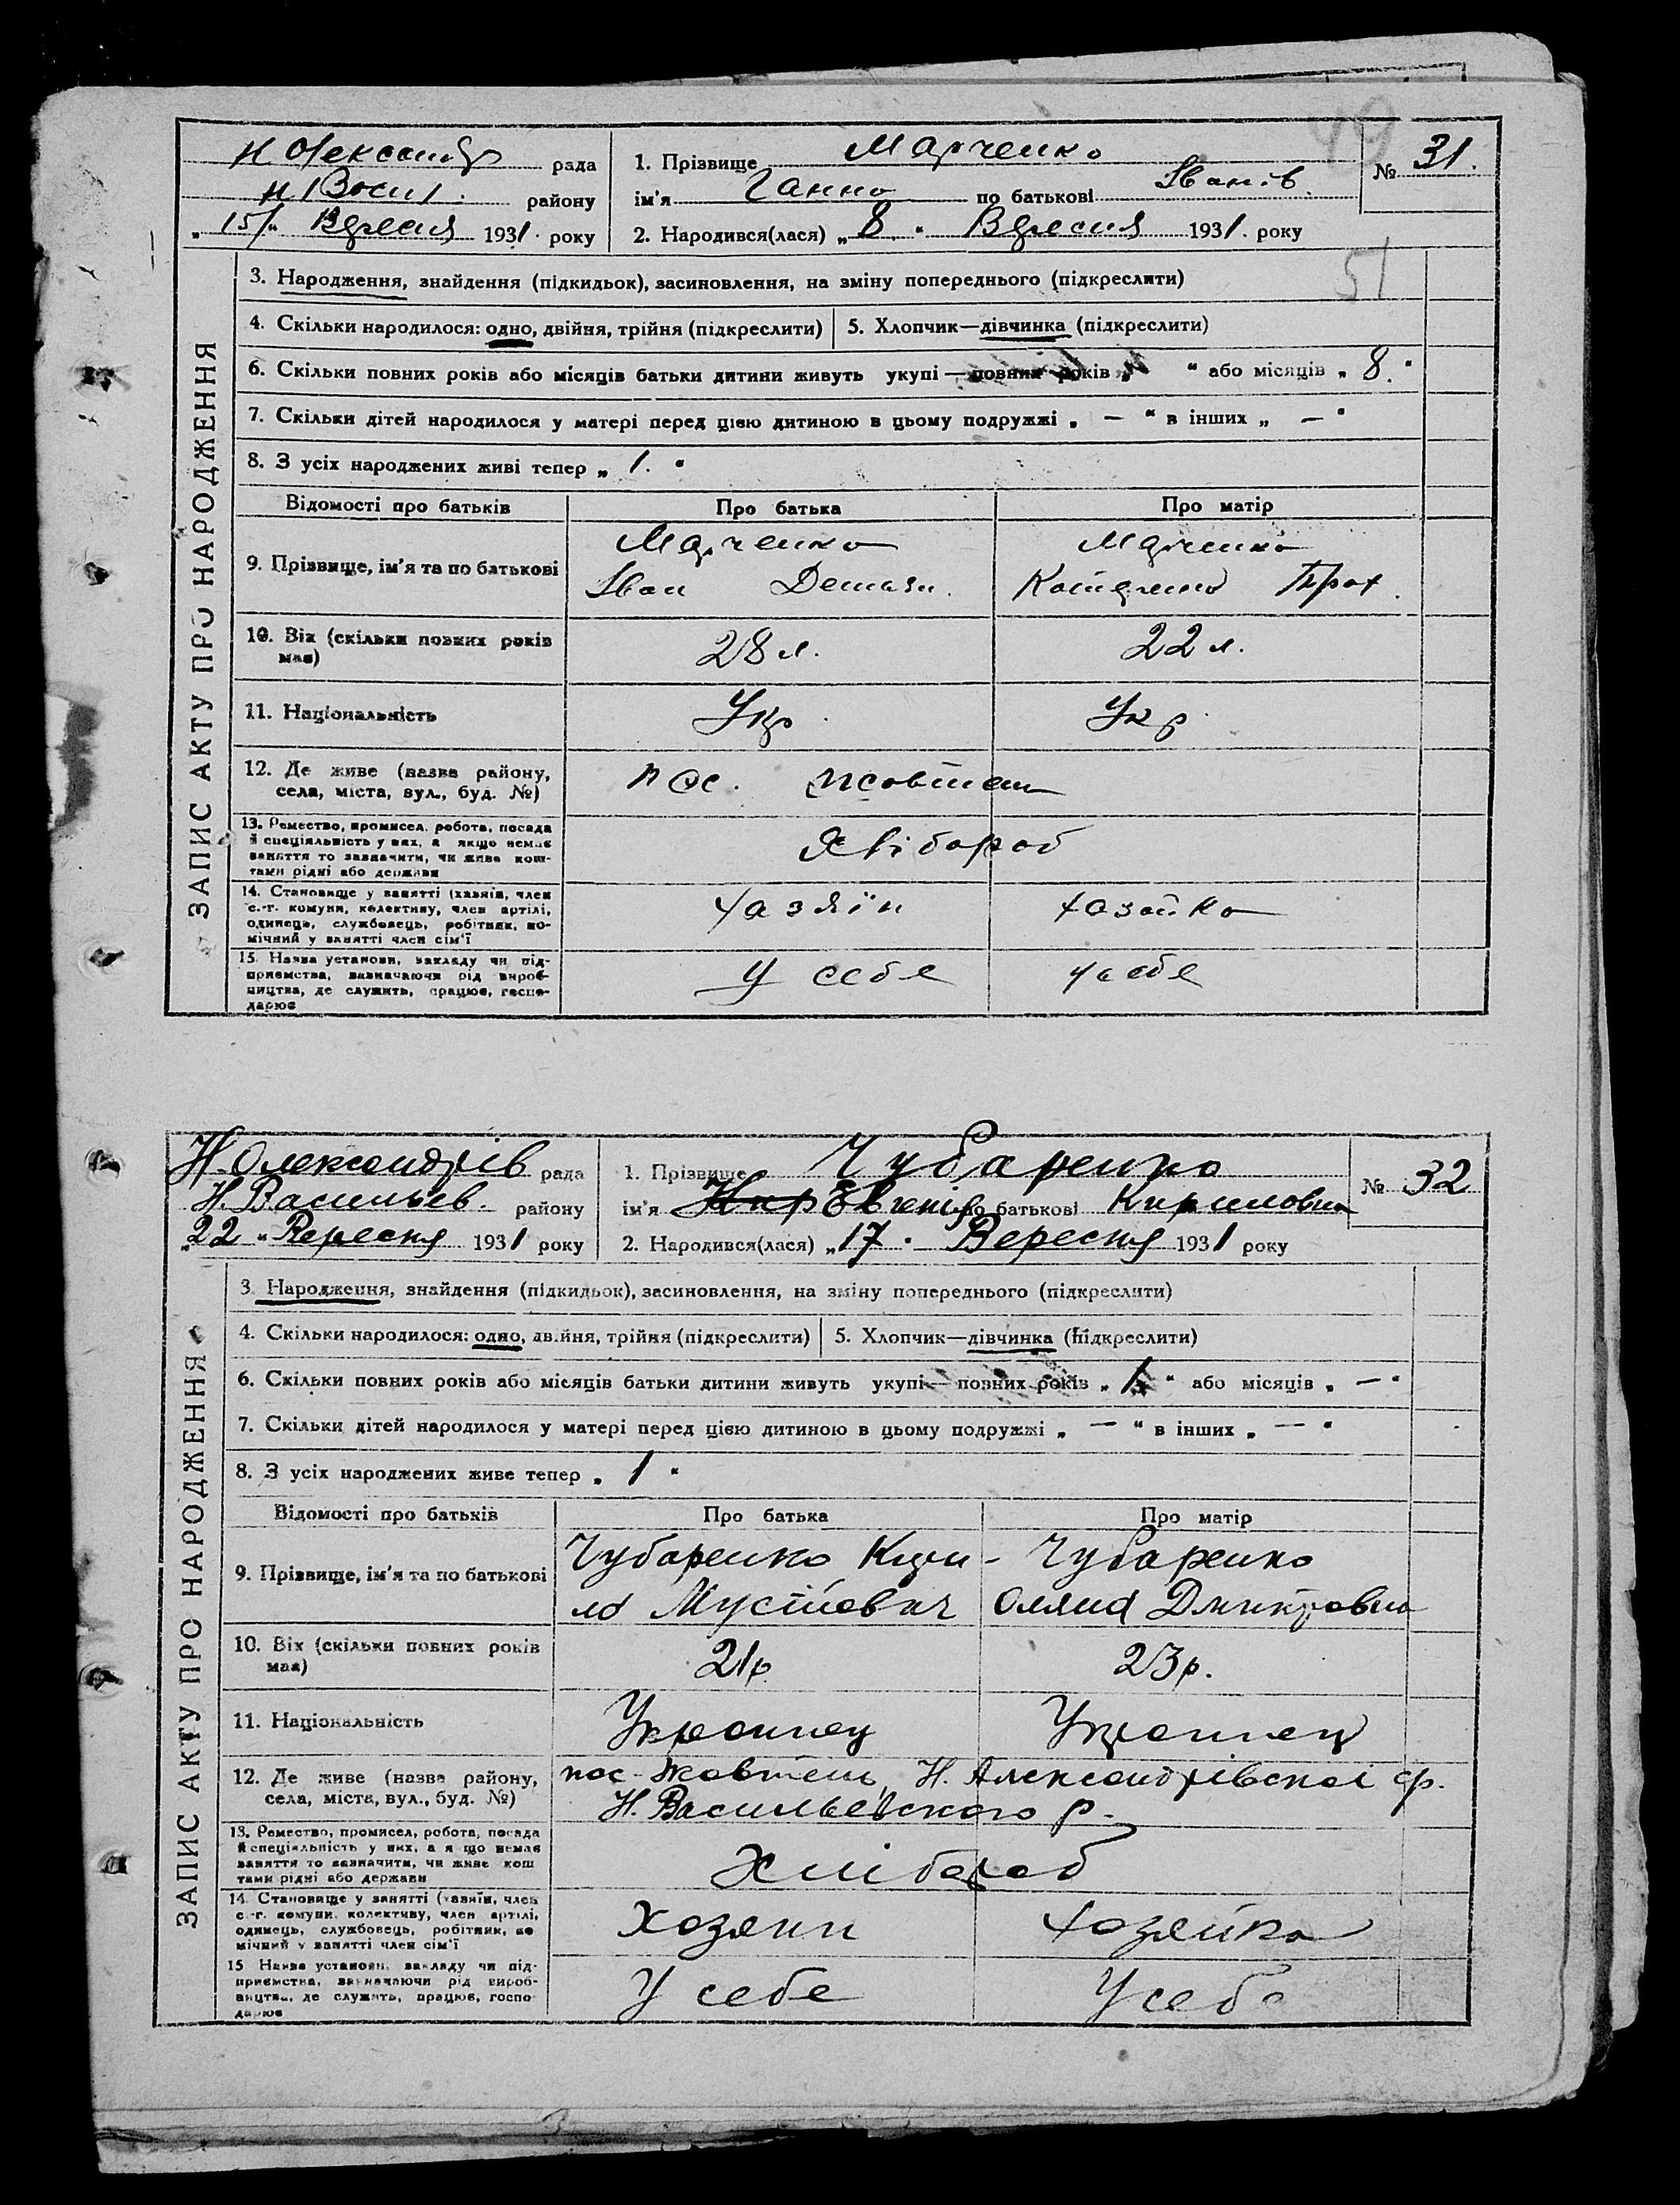 49
Н Олександр рада
1. Прізвище Марченко
№ 31.
Н Васил. району
ім'я Ганна по батькові Іванів.
„15/ІХ“ Вересня 1931. року
2. Народився(лася) „8.“ Вересня 1931. року
51
ЗАПИС АКТУ ПРО НАРОДЖЕННЯ
3. Народження, знайдення (підкидьок), засиновлення, на зміну попереднього (підкреслити)
4. Скільки народилося: одно, двійня, трійня (підкреслити)
5. Хлопчик—дівчинка (підкреслити)
6. Скільки повних років або місяців батьки дитини живуть укупі — повних років „ “ або місяців „ 8.“
7. Скільки дітей народилося у матері перед цією дитиною в цьому подружжі „ — “ в інших „ — “
8. З усіх народжених живі тепер „ 1. “
Відомості про батьків Про батька Про матір
9. Прізвище, ім'я та по батькові
Марченко Марченко
Іван Катерина Трох.
10. Вік (скільки повних років
має)
28 л. 22 л.
11. Національність Укр. Укр.
12. Де живе (назва району,
села, міста, вул., буд. №)
пос. Жовтень
13. Ремество, промисел, робота, посада
й спеціяльність у них, а якщо немає
заняття то зазначити, чи живе кош-
тами рідні або держави
Хлібороб
14. Становище у занятті (хазяїн, член
с.-г. комуни, колективу, член артілі,
одинець, службовець, робітник, по-
мічний у занятті член сім'ї
Хазяїн Хазайка
15. Назва установи, закладу чи під-
приємства, зазначаючи рід вироб-
ництва, де служить, працює, госпо-
дарює
У себе У себе
Н. Олександрів рада
1. Прізвище Чубаренко
№ 32
Н. Васильев. району
ім'я Кир Евгенія по батькові Кириловна
„22“ Вересня 1931 року
2. Народився(лася) „17. Вересня 1931 року
ЗАПИС АКТУ ПРО НАРОДЖЕННЯ
3. Народження, знайдення (підкидьок), засиновлення, на зміну попереднього (підкреслити)
4. Скільки народилося: одно, двійня, трійня (підкреслити)
5. Хлопчик—дівчинка (підкреслити)
6. Скільки повних років або місяців батьки дитини живуть укупі — повних років „ 1 “ або місяців „ — “
7. Скільки дітей народилося у матері перед цією дитиною в цьому подружжі „ — “ в інших „ — “
8. З усіх народжених живе тепер „ 1 “
Відомості про батьків Про батька Про матір
9. Прізвище, ім'я та по батькові
Чубаренко Кири- Чубаренко
ло Дмитровна
10. Вік (скільки повних років
має)
21р. 23р.
11. Національність Украинец Украинец
12. Де живе (назва району,
села, міста, вул., буд. №)
пос-Жовтень, Н. Александрівскої ср.
Н. Васильевского р.
13. Ремество, промисел, робота, посада
й спеціяльність у них, а якщо немає
заняття то зазначити, чи живе кош
тами рідні або держави
Хлібороб
14. Становище у занятті (хазяїн, член
с.-г. комуни, колективу, член артілі,
одинець, службовець, робітник, по
мічний у занятті член сім'ї
Хозяин Хозяйка
15 Назва установи, закладу чи під-
приємства, зазначаючи рід вироб-
ництва, де служить, працює, госпо
дарює
У себе У себе